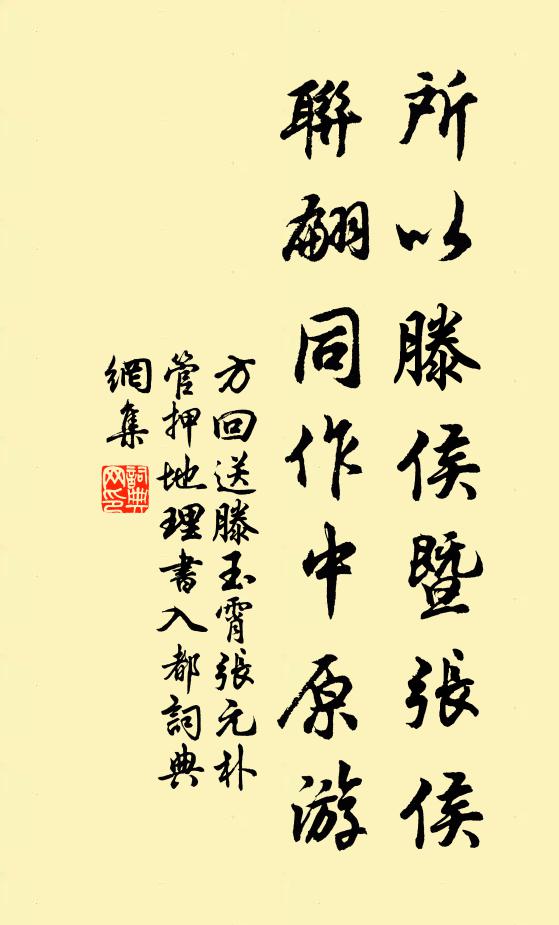 所以滕侯暨張侯
聯翩同作中原游
方回送滕玉霄張元朴
管押地理書入都詞典
網集
詞典
网印